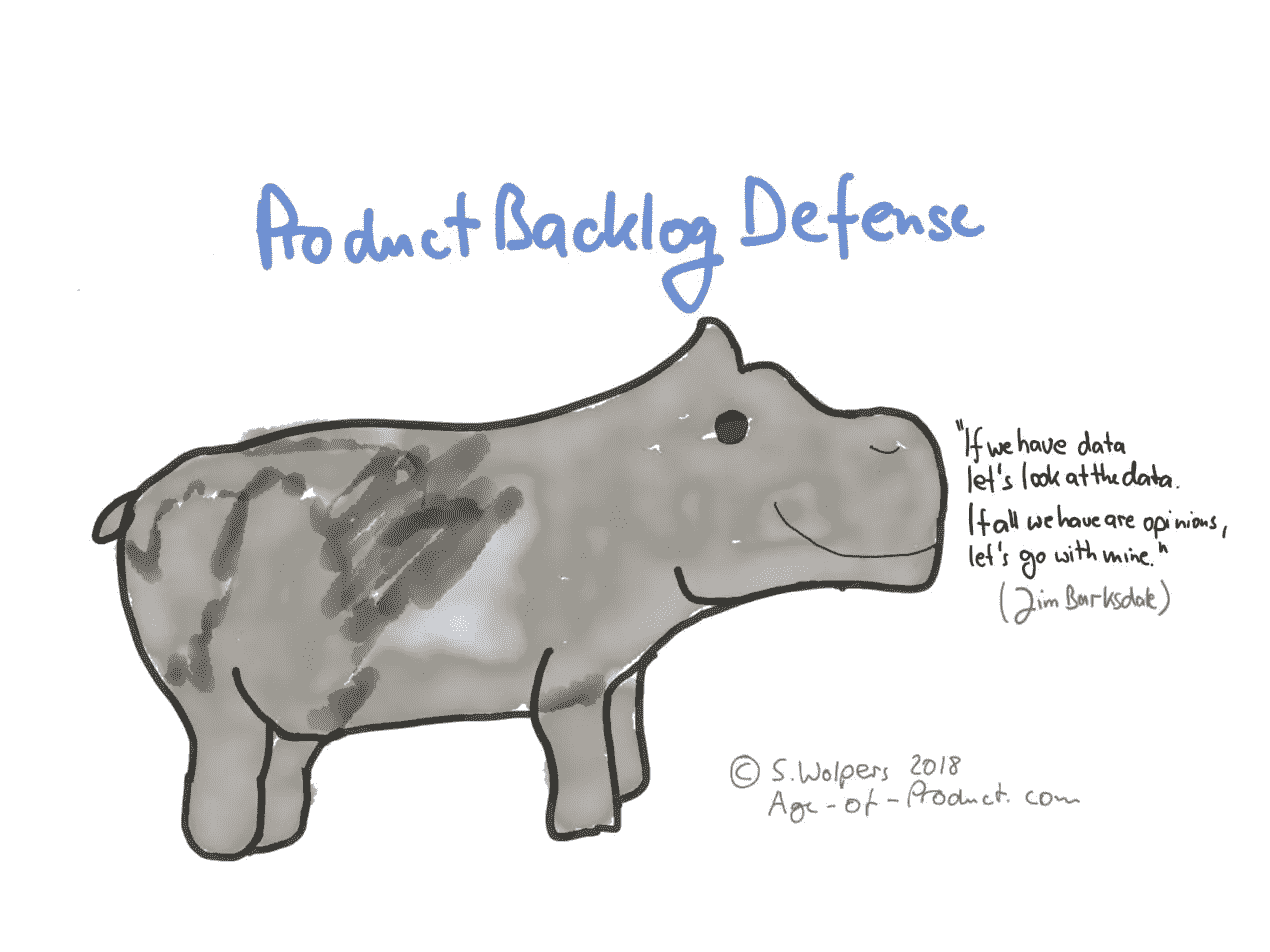 Product Backlog Defense
"If we have data
let's look at the data.
If all we have are opinions,
let's go with mine."
(Jim Barksdale)
© S. Wolpers 2018
Age-of-Product.com